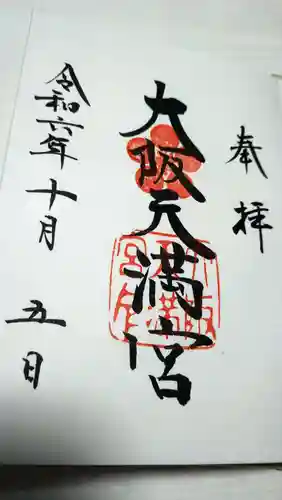 奉拝
大阪天満宮
令和六年十月五日